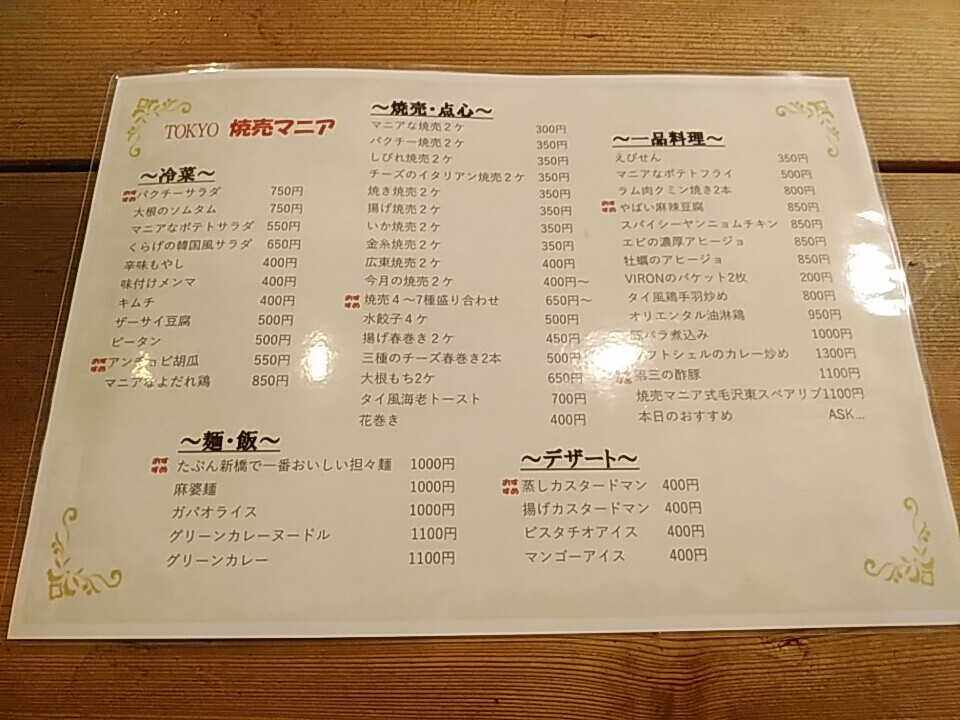 TOKYO 焼売マニア
～冷菜～
おすすめ パクチーサラダ 750円
大根のソムタム 750円
マニアなポテトサラダ 550円
くらげの韓国風サラダ 650円
辛味もやし 400円
味付けメンマ 400円
キムチ 400円
ザーサイ豆腐 500円
ピータン 500円
おすすめ アンチョビ胡瓜 550円
マニアなよだれ鶏 850円
～焼売・点心～
マニアな焼売2ケ 300円
パクチー焼売2ケ 350円
しびれ焼売2ケ 350円
チーズのイタリアン焼売2ケ 350円
焼き焼売2ケ 350円
揚げ焼売2ケ 350円
いか焼売2ケ 350円
金糸焼売2ケ 350円
広東焼売2ケ 400円
今月の焼売2ケ 400円～
おすすめ 焼売4～7種盛り合わせ 650円～
水餃子4ケ 500円
揚げ春巻き2ケ 450円
三種のチーズ春巻き2本 500円
大根もち2ケ 650円
タイ風海老トースト 700円
花巻き 400円
～一品料理～
えびせん 350円
マニアなポテトフライ 500円
ラム肉クミン焼き2本 800円
おすすめ やばい麻辣豆腐 850円
スパイシーヤンニョムチキン 850円
エビの濃厚アヒージョ 850円
牡蠣のアヒージョ 850円
VIRONのバケット2枚 200円
タイ風鶏手羽炒め 800円
オリエンタル油淋鶏 950円
豚バラ煮込み 1000円
ソフトシェルのカレー炒め 1300円
おすすめ 第三の酢豚 1100円
焼売マニア式毛沢東スペアリブ1100円
本日のおすすめ ASK...
～麺・飯～
おすすめ たぶん新橋で一番おいしい担々麺 1000円
麻婆麺 1000円
ガパオライス 1000円
グリーンカレーヌードル 1100円
グリーンカレー 1100円
～デザート～
おすすめ 蒸しカスタードマン 400円
揚げカスタードマン 400円
ピスタチオアイス 400円
マンゴーアイス 400円